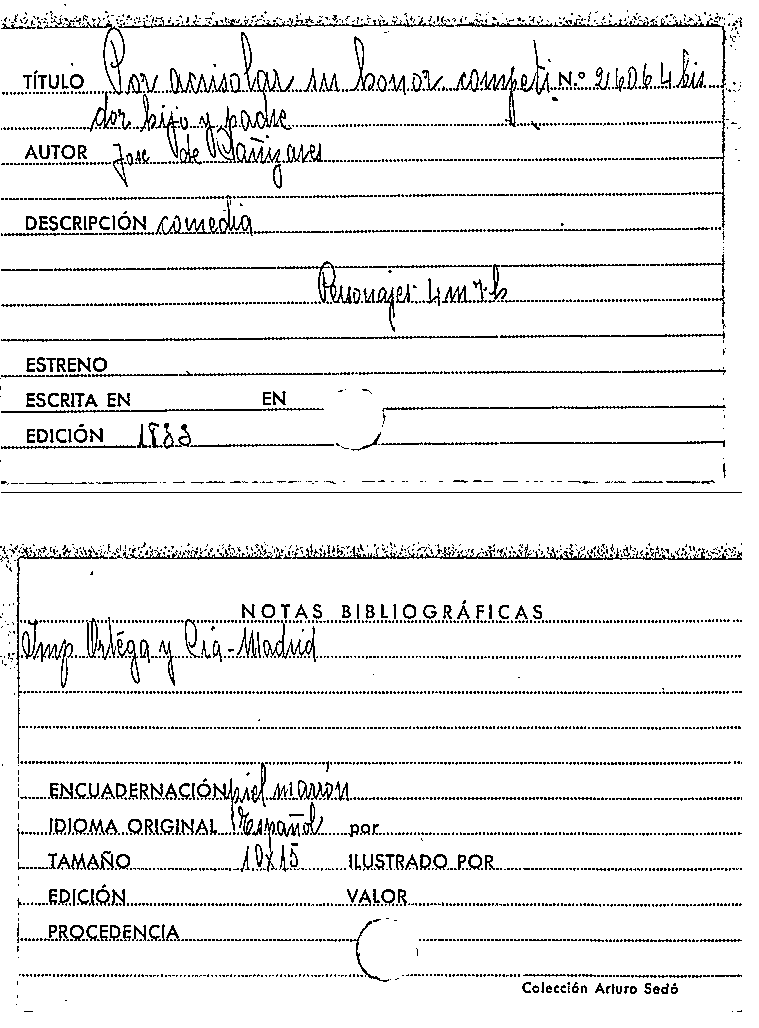 TÍTULO Por acrisolar su honor competi N.º 26064 bis
dor hijo y padre
AUTOR Jose de Cañizares
DESCRIPCIÓN comedia
Personajes 4 m 7 h
ESTRENO
ESCRITA EN EN
EDICIÓN 1833
NOTAS BIBLIOGRÁFICAS
Imp Ortéga y Cia - Madrid
ENCUADERNACIÓN piel marrón
IDIOMA ORIGINAL Español por
TAMAÑO 10x15 ILUSTRADO POR
EDICIÓN VALOR
PROCEDENCIA
Colección Arturo Sedó